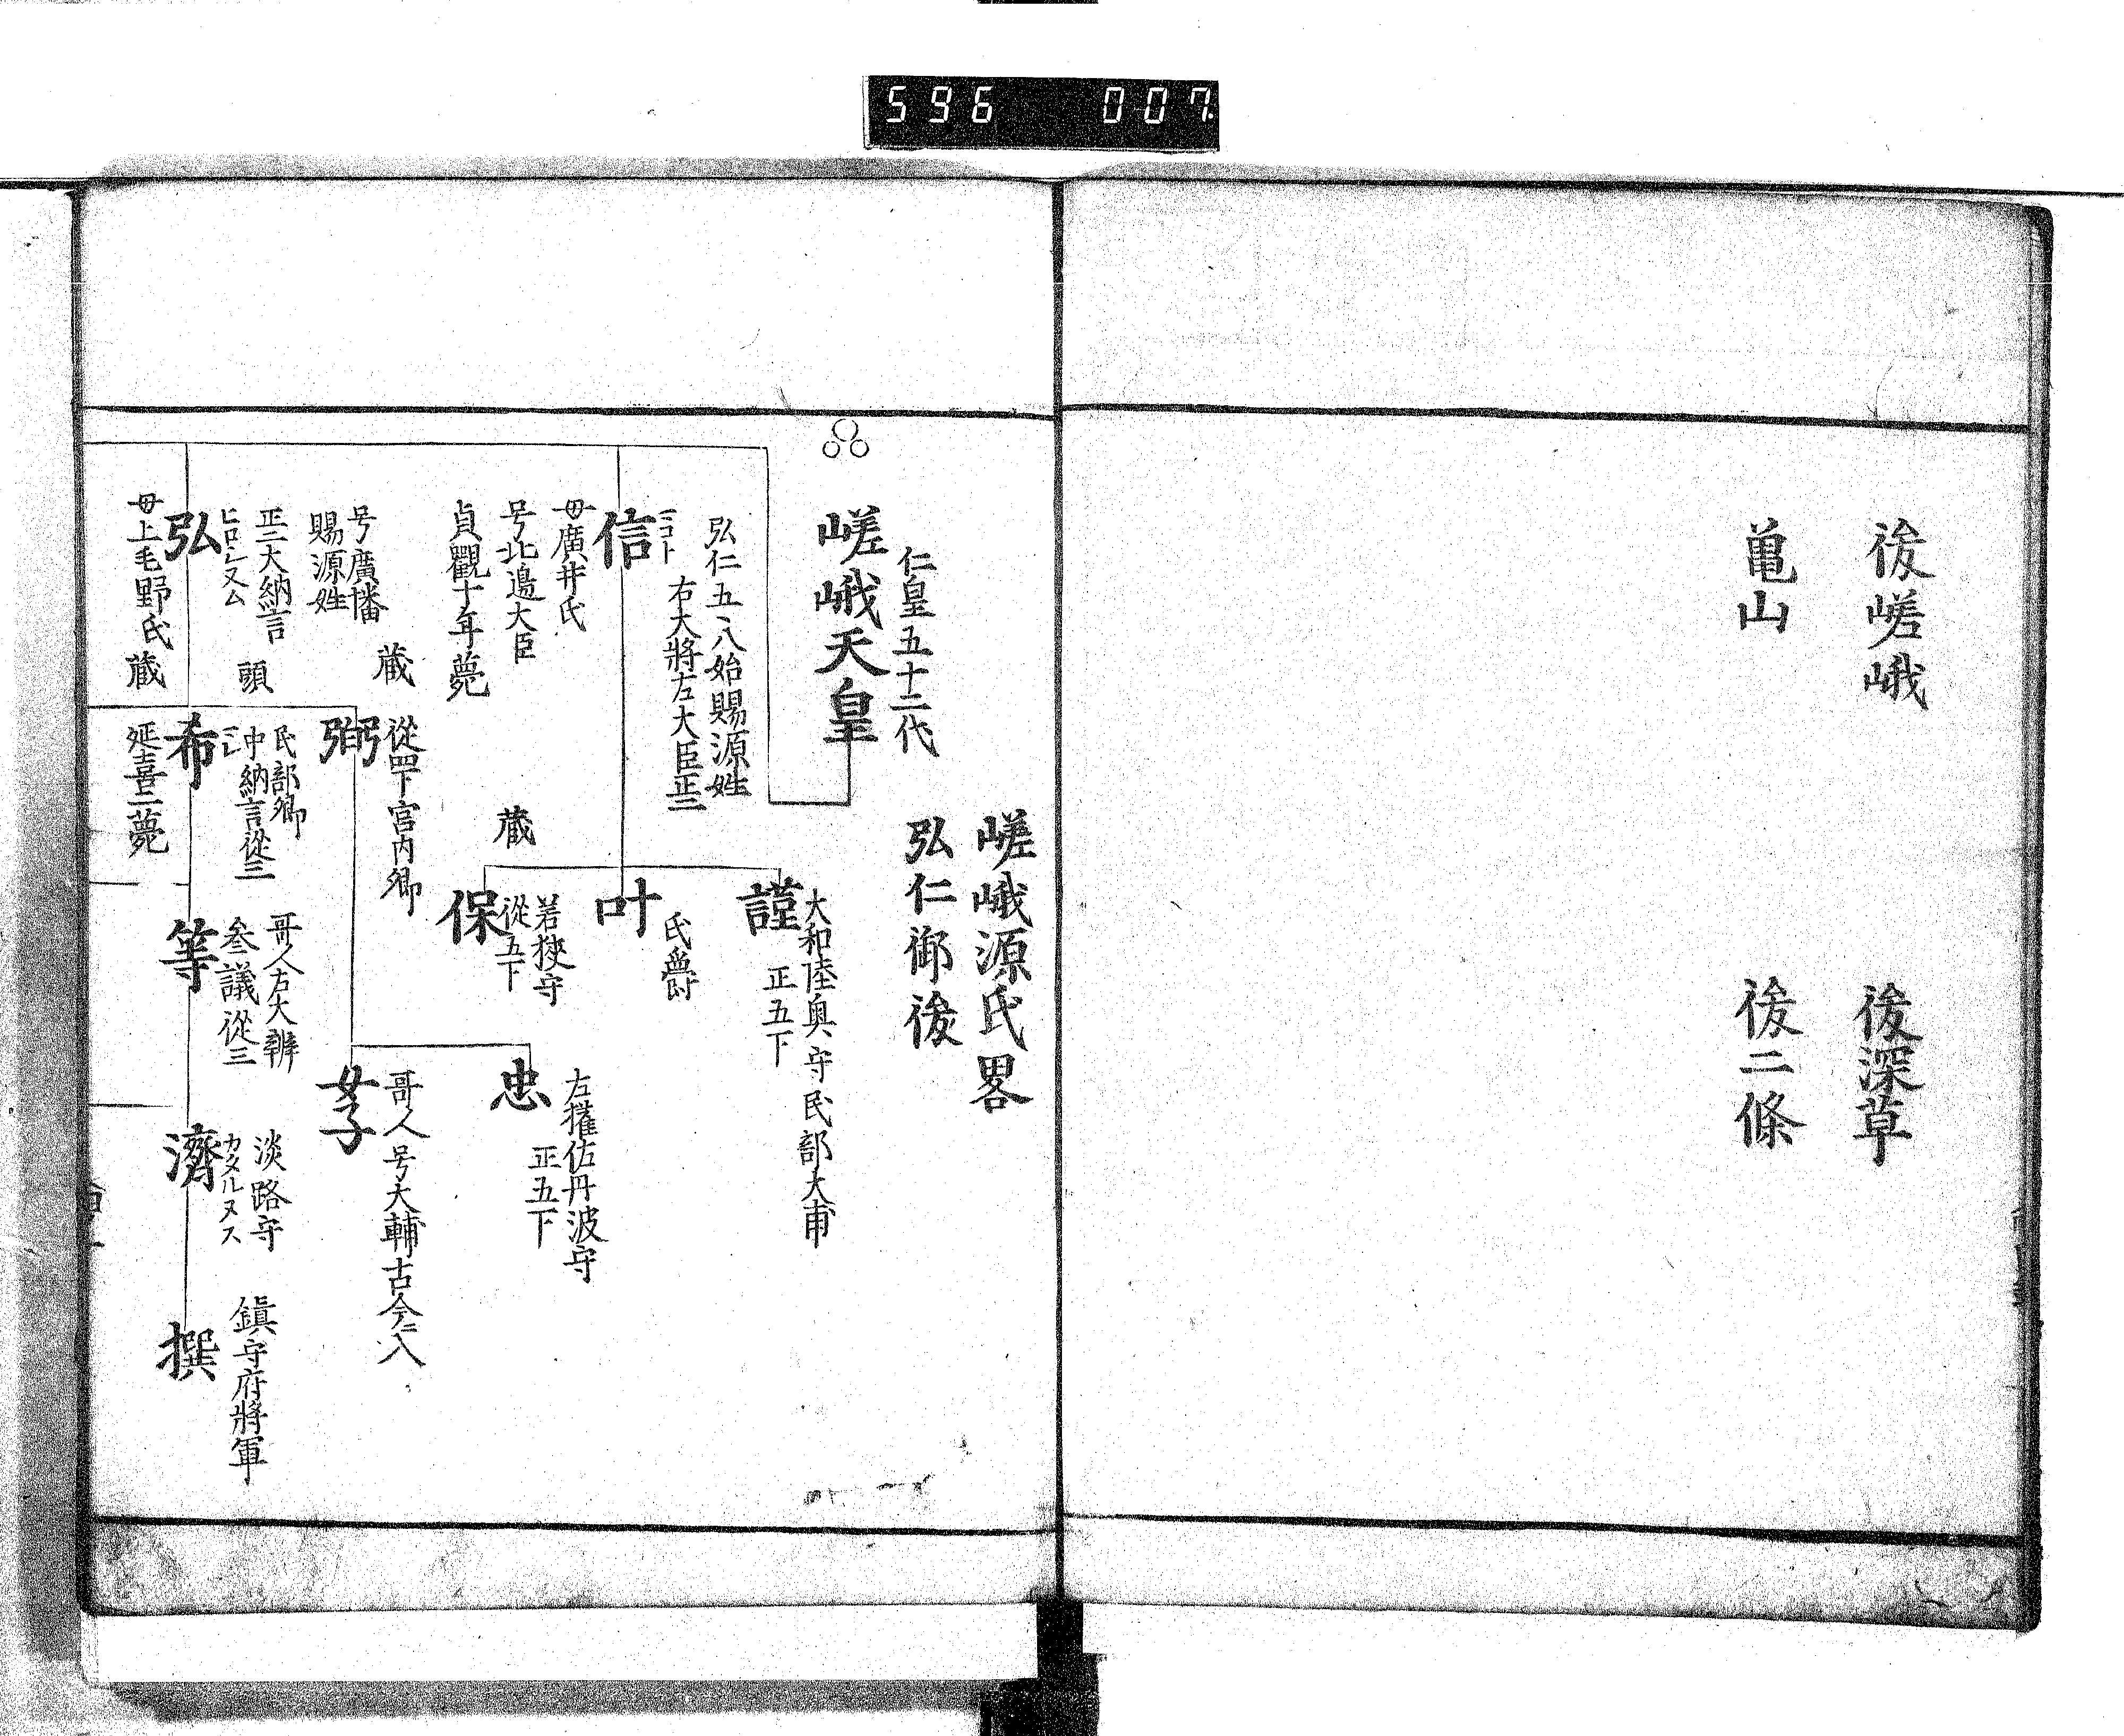 596 007
後嵯峨 後深草
亀山 後二條
嵯峨源氏畧
弘仁御後
仁皇五十二代
嵯峨天皇
弘仁五、八始賜源姓
右大將左大臣正二
信
母廣井氏
号北邉大臣
貞觀十年薨
大和陸奥守民部大甫
正五下
謹
氏爵
叶
若狹守
從五下
保
蔵
左權佐丹波守
正五下
忠
蔵
從四下宮内卿
弼
哥人号大輔古今ニ入
女子
号廣幡
賜源姓
正三大納言
ヒロシ又ム
弘
母上毛野氏
頭
民部卿
中納言從三
希
蔵
延喜二薨
哥人右大辨
叅議從三
等
淡路守
カタルヌス
濟
鎮守府將軍
撰